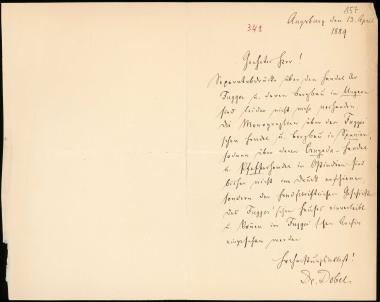 157
Augsburg den 13. April
1889
342
Geehrter Herr!
Separatabdrücke über den Handel der
Fugger u. deren Bergbau in Ungarn
sind leider nicht mehr vorhanden
die Monographien über der Fugger
schen Handel u. Bergbau in Spanien,
sodann über deren Handel
u. Pfefferhandel in Ostindien sind
bisher nicht im Druck erschienen
sondern der handschriftlichen Geschichte
des Fugger'schen Hauses einverleibt
u. können im Fugger'schen Archiv
eingesehen werden
Hochachtungsvollst!
Dr. Dobel.